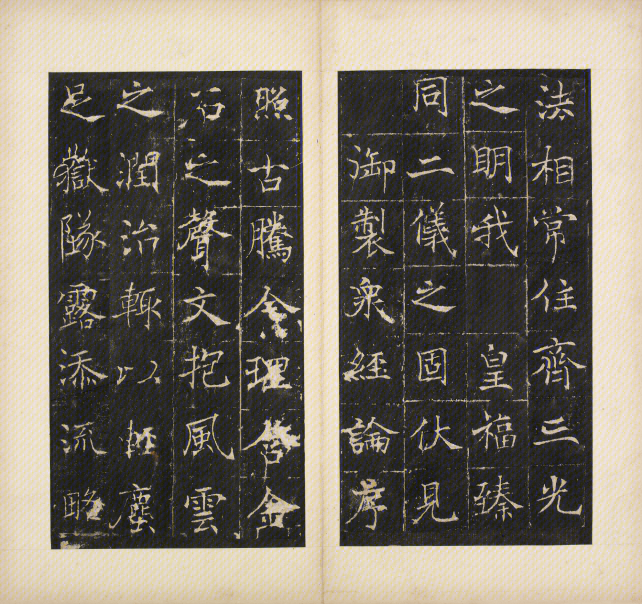 法相常住齊三光
之明我 皇福臻
同二儀之固伏見
御製衆經論序
照古騰今理含金
石之聲文抱風雲
之潤治輒以輕塵
足嶽隊露添流略